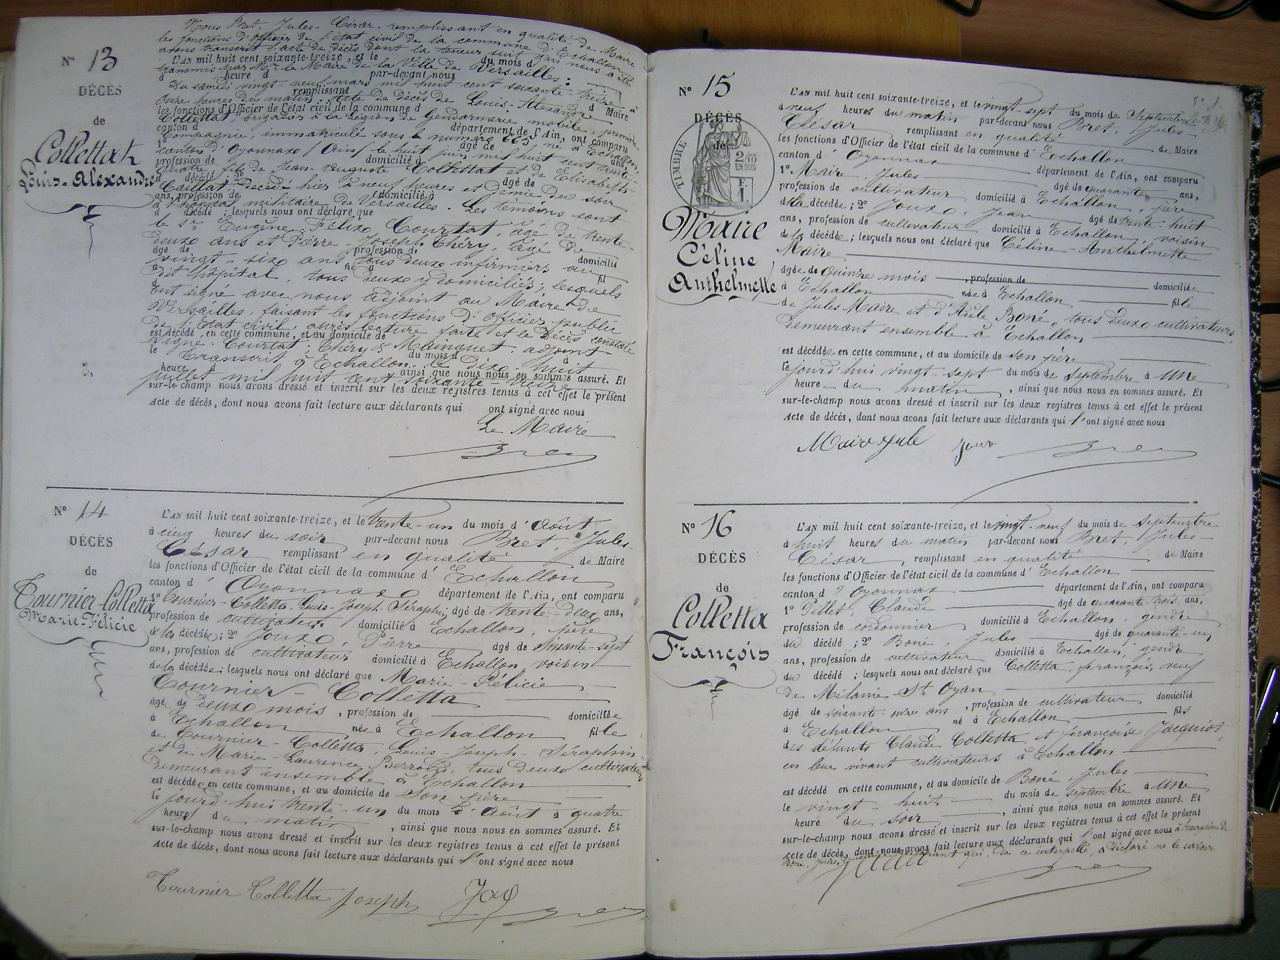 N° 13
DÉCÈS
de
Collettaz
Louis-Alexandre
Nous Bret, Jules-César, remplissant en qualité de Maire
les fonctions d'officier de l'état civil de la commune d'Echallon
avons transcrit l'acte de décès dont la teneur suit
L'AN mil huit cent soixante-treize, et le du mois d
transmis par Mr le Maire de la Ville de Versailles:
d heure d par-devant nous
du samedi vingt-neuf mars mil huit cent soixante-treize à
remplissant d Maire
onze heures du matin. Acte de décès de Louis-Alexandre
les fonctions d'Officier de l'état civil de la commune d
Collettaz
légion de Gendarmerie mobile, première
canton d département de l'Ain, ont comparu
compagnie, immatriculé sous le numéro 665, né à Echallon
canton d'Oyonnax (Ain) le huit juin mil huit cent
profession de domicilié à
fils de Jean Auguste Collettaz et de Elisabeth
Caillat décédé hier à neuf heures et demie du soir
ans, profession de domicilié à
à l'hôpital militaire de Versailles. Les témoins sont
d décédé ; lesquels nous ont déclaré que
le Sr Eugène Félix Courtat, âgé de trente-
deux ans et Pierre-Joseph Théry, âgé de
âgé de profession de domicilié
vingt-six ans, tous deux infirmiers au
à né à fil
dit hôpital, tous deux y domiciliés; lesquels
ont signé avec nous Adjoint au Maire de
Versailles, faisant les fonctions d'Officier public
de l'état civil, après lecture faite et le décès constaté
est décédé en cette commune, et au domicile de
Signé: Courtat; Théry & Mainguet, adjoint
le du mois d à
Transcrit à Echallon le dix-huit
heure ainsi que nous nous en sommes assuré. Et
juillet mil huit cent soixante-treize
sur-le-champ nous avons dressé et inscrit sur les deux registres tenus à cet effet le présent
acte de décès, dont nous avons fait lecture aux déclarants qui ont signé avec nous
Le Maire
Bret
N° 14
DÉCÈS
de
Tournier-Colletta
Marie-Félicie
L'AN mil huit cent soixante-treize, et le trente-un du mois d'Août
à cinq heures du soir par-devant nous Bret, Jules-
César remplissant en qualité de Maire
les fonctions d'Officier de l'état civil de la commune d'Echallon
canton d'Oyonnax département de l'Ain, ont comparu
1° Tournier-Colletta, Louis-Joseph Séraphin, âgé de trente-deux ans,
profession de cultivateur domicilié à Echallon, père
de la décédée; 2° Joux Pierre âgé de soixante-sept
ans, profession de cultivateur domicilié à Echallon, voisin
de la décédée; lesquels nous ont déclaré que Marie-Félicie
Tournier-Colletta
âgé de deux mois, profession de domiciliée
à Echallon née à Echallon fille
de Tournier-Colletta, Louis-Joseph-Séraphin
et de Marie-Laurence tous deux cultivateurs
demeurant ensemble à Echallon
est décédée en cette commune, et au domicile de son père
le jourd'hui trente-un du mois d'Août à quatre
heures du matin, ainsi que nous nous en sommes assuré. Et
sur-le-champ nous avons dressé et inscrit sur les deux registres tenus à cet effet le présent
acte de décès, dont nous avons fait lecture aux déclarants qui l'ont signé avec nous
Tournier Colletta Joseph Bret
N° 15
DÉCÈS
de
TIMBRE
Maire
Céline
Anthelmette
L'AN mil huit cent soixante-treize, et le vingt sept du mois de Septembre
à neuf heures du matin par-devant nous Bret, Jules-
César remplissant en qualité de Maire
les fonctions d'Officier de l'état civil de la commune d'Echallon
canton d'Oyonnax département de l'Ain, ont comparu
1° Maire, Jules âgé de quarante ans,
profession de cultivateur domicilié à Echallon, père
de la décédée; 2° Joux, Jean âgé de trente-huit
ans, profession de cultivateur domicilié à Echallon, voisin
de la décédée; lesquels nous ont déclaré que Céline-Anthelmette
Maire
âgée de quinze mois, profession de domiciliée
à Echallon née à Echallon fille
de Jules Maire et d'Adèle Boné, tous deux cultivateurs
demeurant ensemble à Echallon
est décédée en cette commune, et au domicile de son père
le jourd'hui vingt sept du mois de septembre à une
heure du matin, ainsi que nous nous en sommes assuré. Et
sur-le-champ nous avons dressé et inscrit sur les deux registres tenus à cet effet le présent
acte de décès, dont nous avons fait lecture aux déclarants qui l'ont signé avec nous
Maire Jule Joux Bret
N° 16
DÉCÈS
de
Colletta
François
L'AN mil huit cent soixante-treize, et le vingt-neuf du mois de septembre
à huit heures du matin par-devant nous Bret, Jules-
César, remplissant en qualité de Maire
les fonctions d'Officier de l'état civil de la commune d'Echallon
canton d'Oyonnax département de l'Ain, ont comparu
1° Pillet, Claude âgé de quarante trois ans,
profession de cordonnier domicilié à Echallon, gendre
du décédé; 2° Boné, Jules âgé de quarante-un
ans, profession de cultivateur domicilié à Echallon, gendre
du décédé; lesquels nous ont déclaré que Colletta-François, veuf
de Mélanie St Oyan
âgé de soixante- ans, profession de cultivateur domicilié
à Echallon né à Echallon fils
des défunts Claude Colletta et Françoise Jacquiot,
en leur vivant cultivateurs à Echallon
est décédé en cette commune, et au domicile de Boné, Jules
le vingt-huit du mois de septembre à une
heure du soir, ainsi que nous nous en sommes assuré. Et
sur-le-champ nous avons dressé et inscrit sur les deux registres tenus à cet effet le présent
acte de décès, dont nous avons fait lecture aux déclarants qui l'ont signé avec nous à l'exception de
Boné, Jules, qui, de ce interpellé, a déclaré ne le savoir
Bret